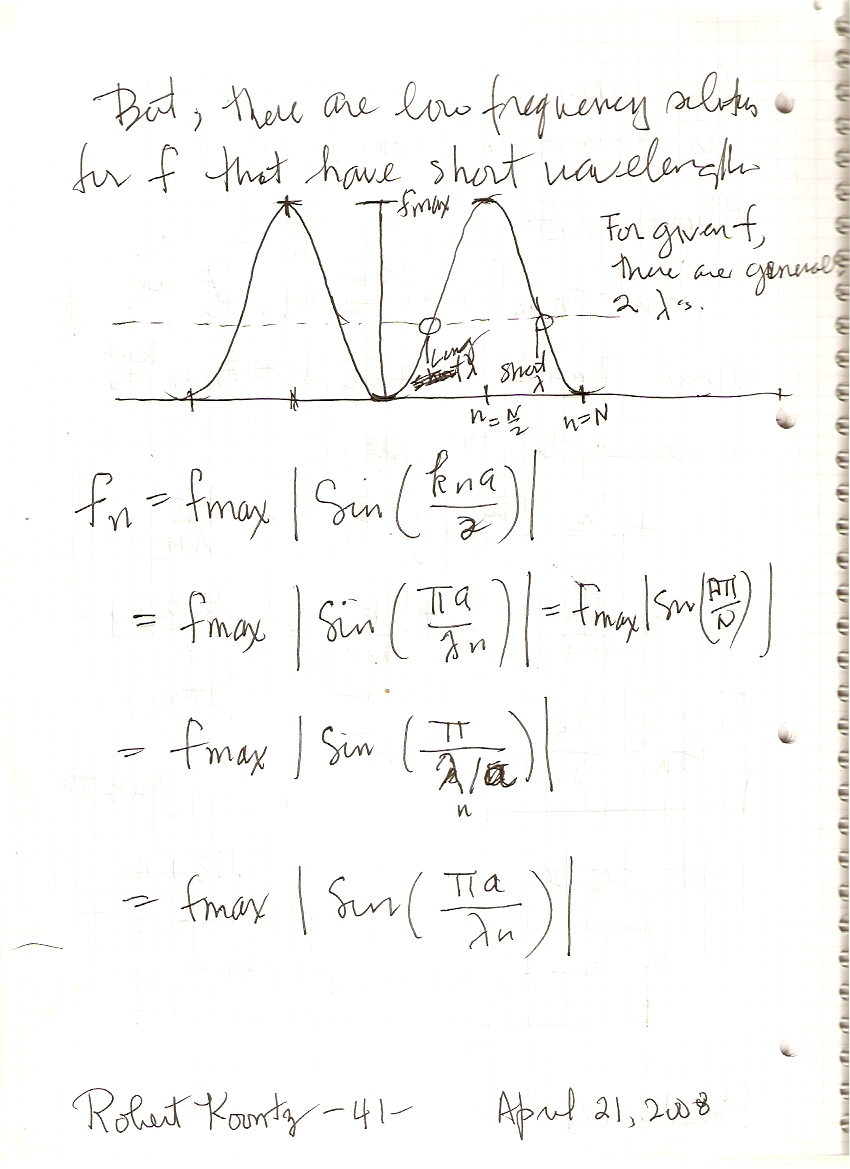 But, there are low frequency solutions
for f that have short wavelengths
fmax
For given f,
there are general
2 λ's.
Long
λ
short
λ
n = N/2
n = N
fn = fmax | Sin ( kna / 2 ) |
= fmax | Sin ( πa / λn ) | = fmax | Sin ( nπ / N ) |
= fmax | Sin ( π / λn/a ) |
= fmax | Sin ( πa / λn ) |
Robert Koontz -41- April 21, 2008